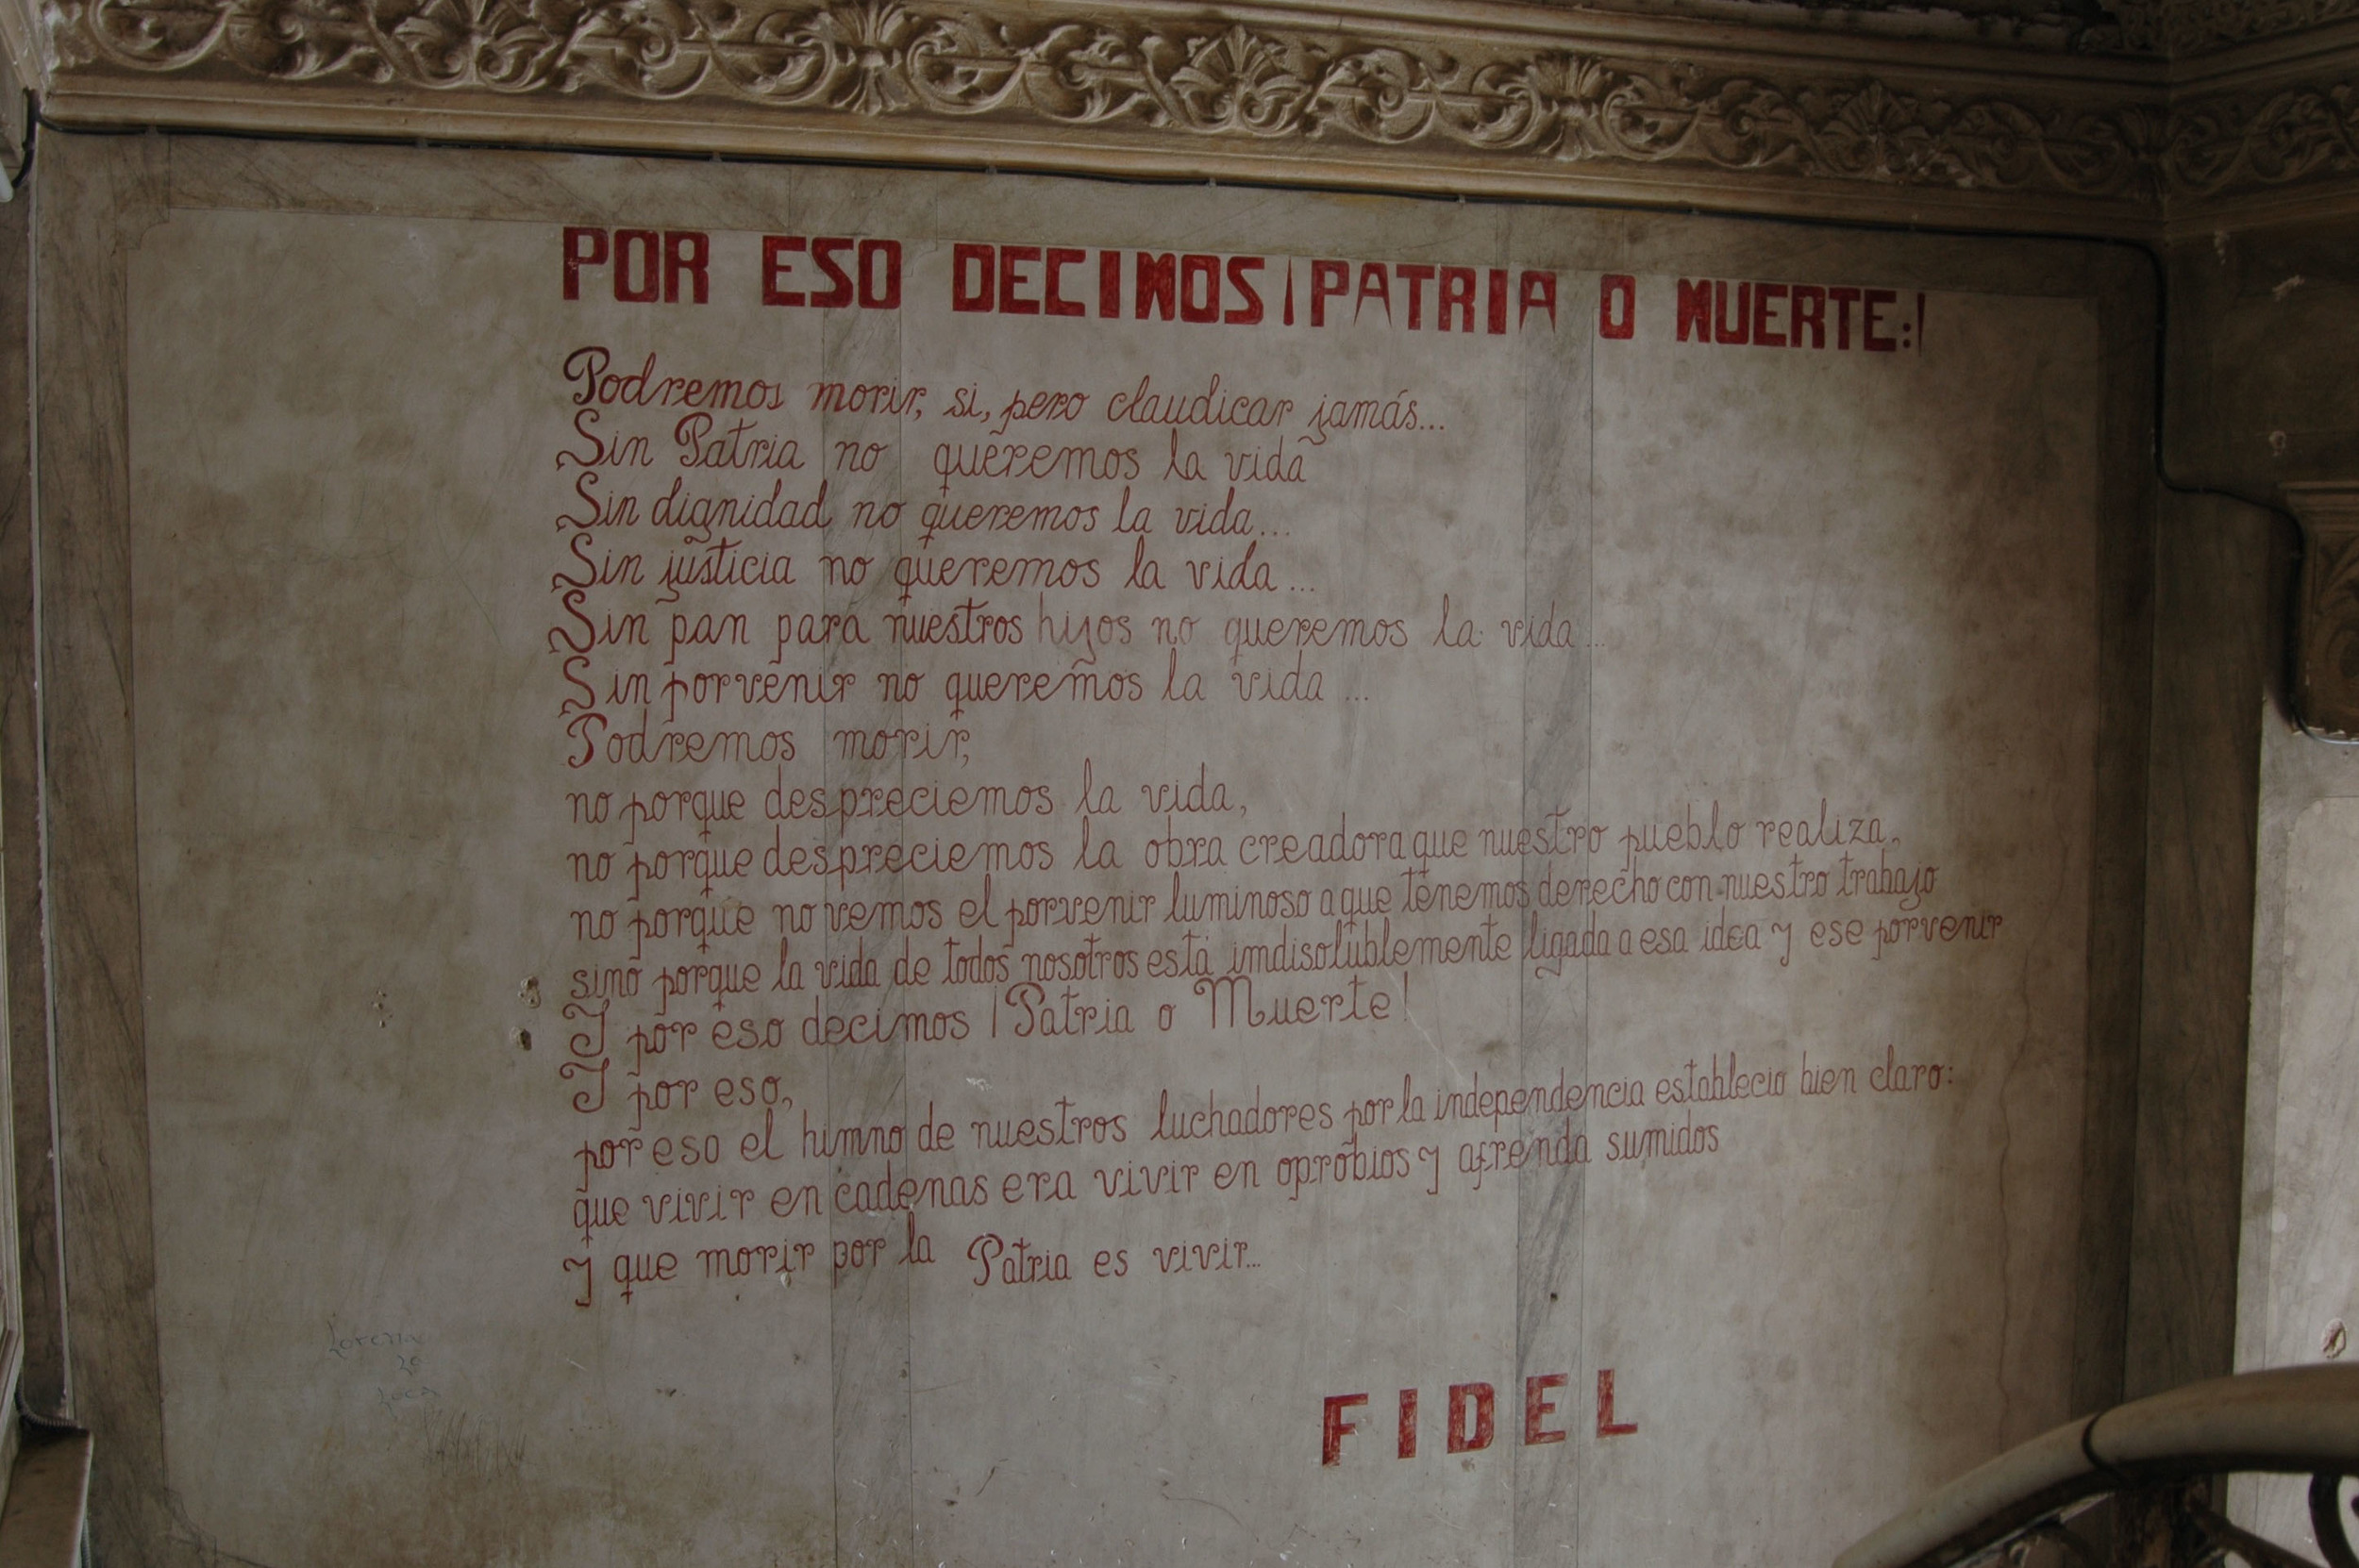 POR ESO DECIMOS ¡PATRIA O MUERTE:!
Podremos morir, si, pero claudicar jamás...
Sin Patria no queremos la vida
Sin dignidad no queremos la vida...
Sin justicia no queremos la vida...
Sin pan para nuestros hijos no queremos la vida...
Sin porvenir no queremos la vida...
Podremos morir,
no porque despreciemos la vida,
no porque despreciemos la obra creadora que nuestro pueblo realiza,
no porque no vemos el porvenir luminoso a que tenemos derecho con nuestro trabajo
sino porque la vida de todos nosotros está imdisolublemente ligada a esa idea y ese porvenir
Y por eso decimos ¡Patria o Muerte!
Y por eso,
por eso el himno de nuestros luchadores por la independencia establecio bien claro:
que vivir en cadenas era vivir en oprobios y afrenda sumidos
y que morir por la Patria es vivir...
Lorena
FIDEL